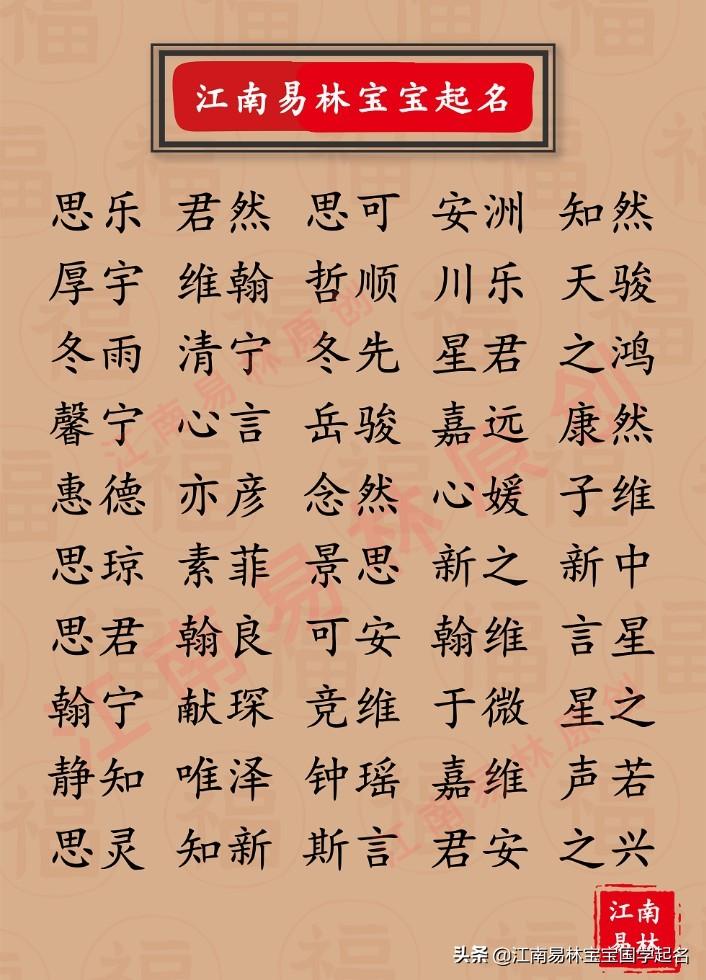 江南易林宝宝起名
思乐 君然 思可 安洲 知然
厚宇 维翰 哲顺 川乐 天骏
冬雨 清宁 冬先 星君 之鸿
馨宁 心言 岳骏 嘉远 康然
惠德 亦彦 念然 心媛 子维
思琼 素菲 景思 新之 新中
思君 翰良 可安 翰维 言星
翰宁 献琛 竞维 于微 星之
静知 唯泽 钟瑶 嘉维 声若
思灵 知新 斯言 君安 之兴
江南易林原创
江南易林原创
江南易林原创
江南
易林
头条 @江南易林宝宝国学起名